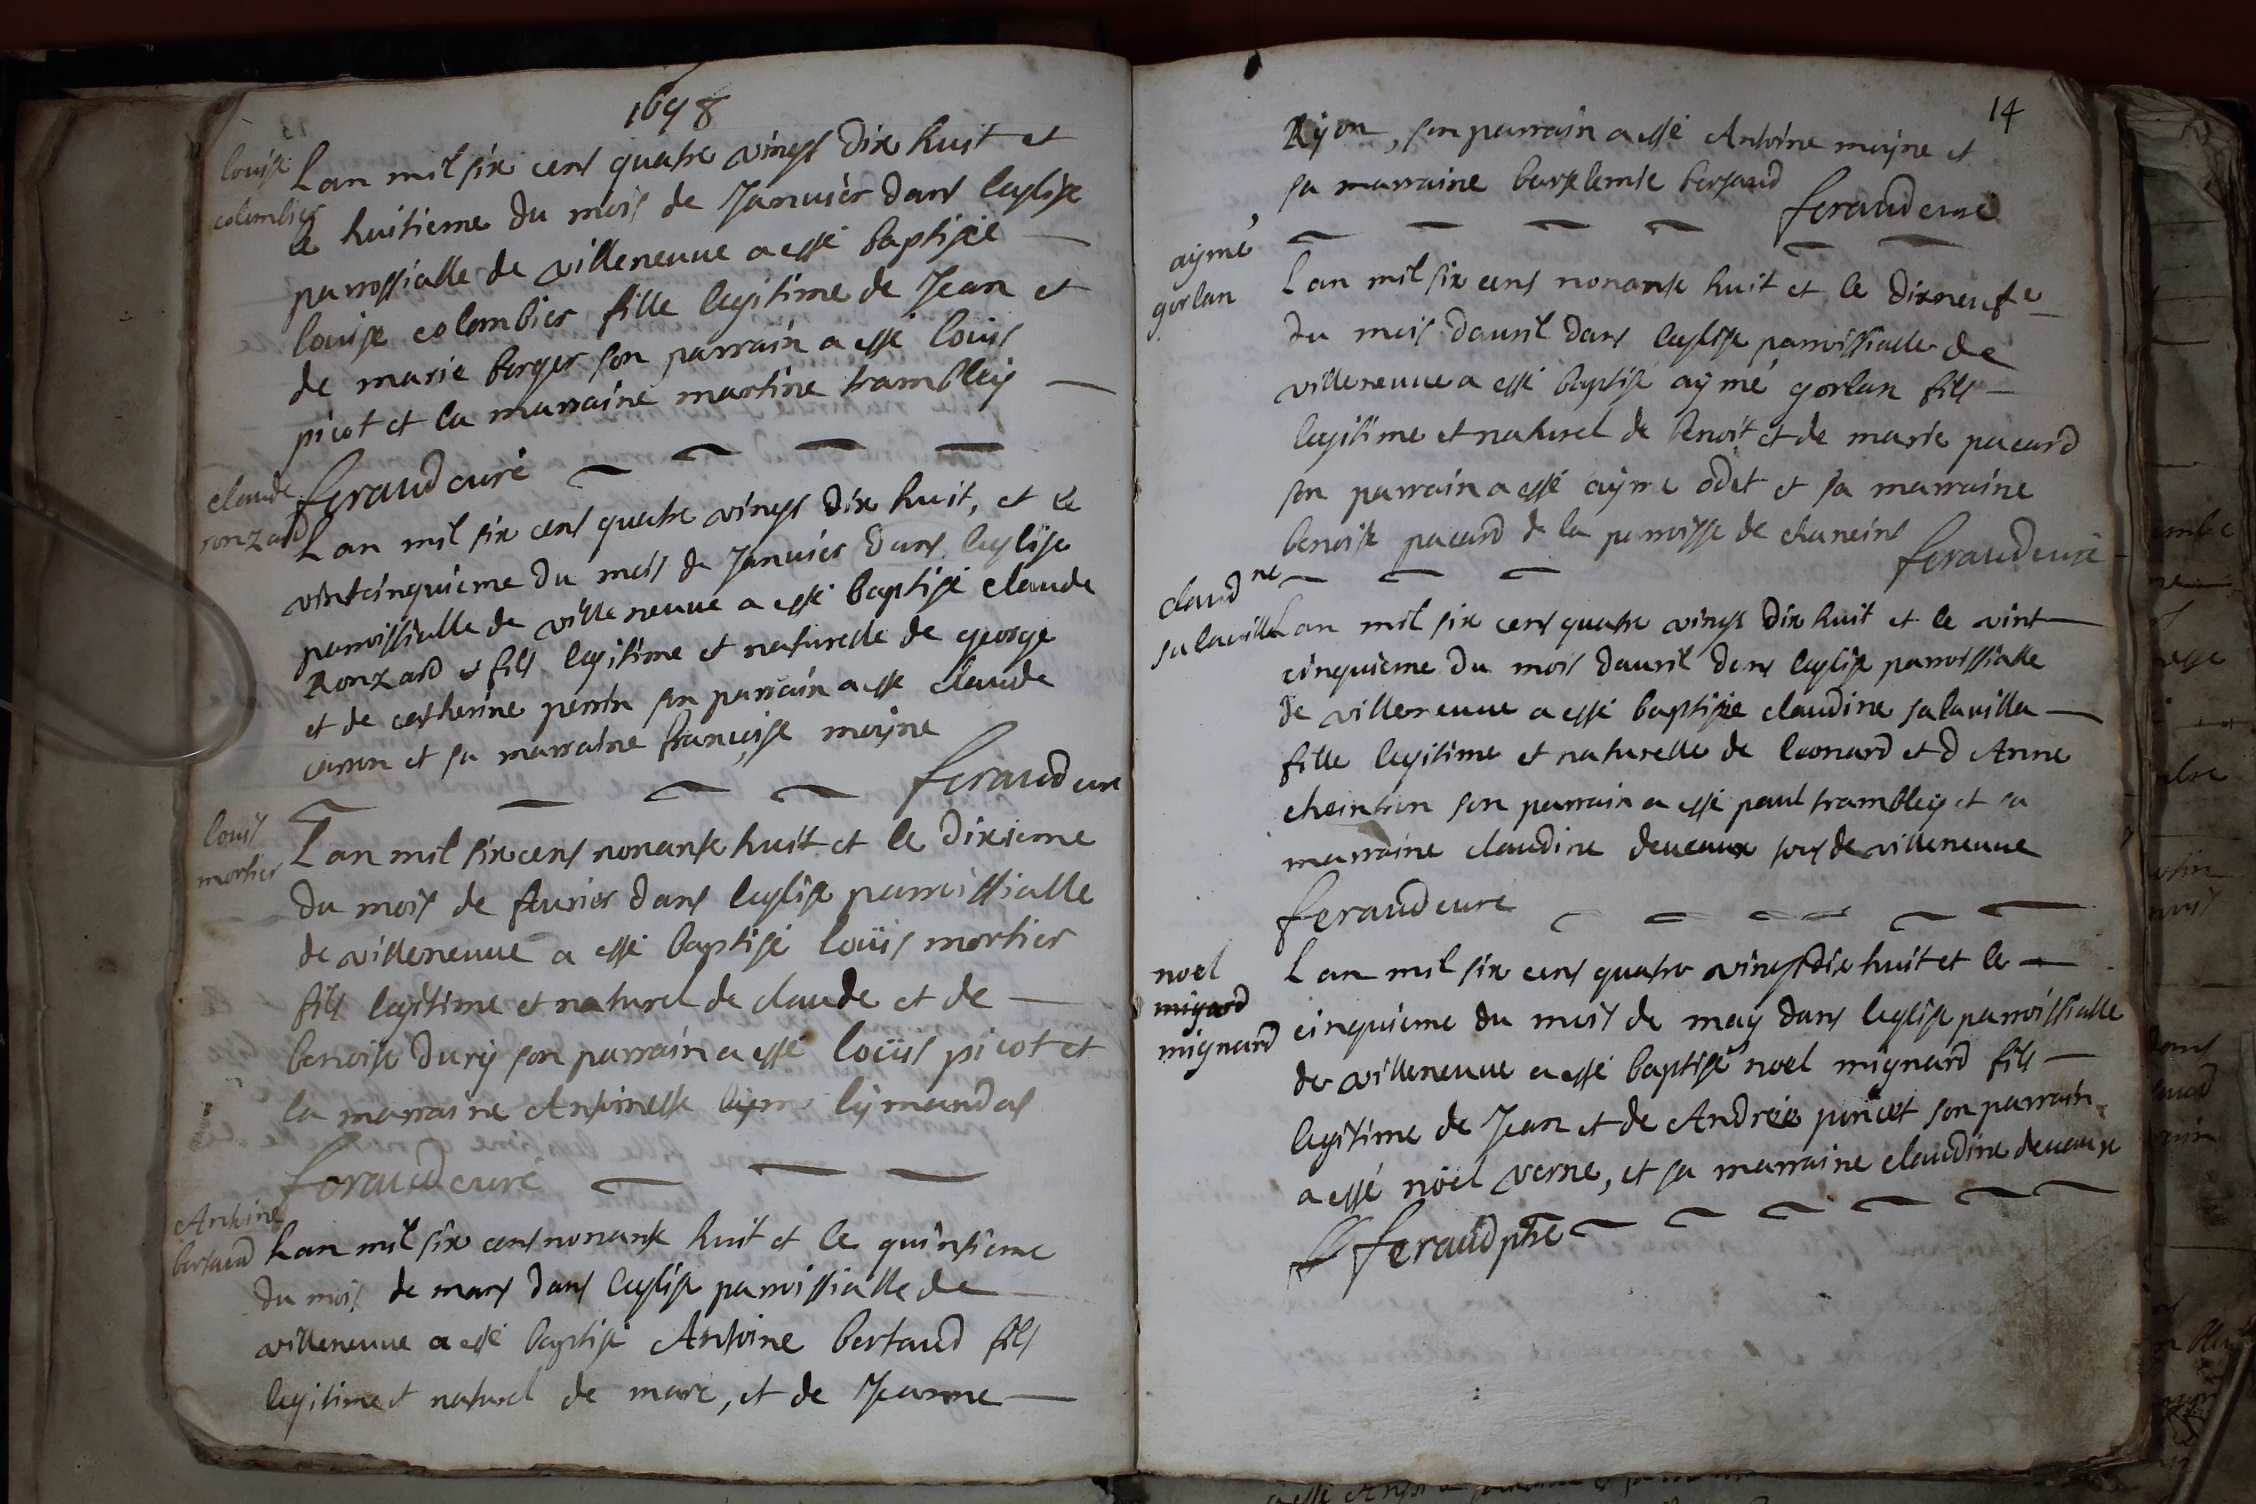 1698
louise
colombier
Lan mil six cens quatre vings dix huit et
le huitieme du mois de Januier dans leglise
parrossialle de villeneuue a esté baptisée
louise colombier fille legitime de Jean et
de marie berger son parrain a esté louis
picot et la marraine martine trambley
feraud curé
claude
ronzard
Lan mil six cens quatre vings dix huit, et le
vintcinquieme du mois de Januier dans leglise
parroissialle de villeneuue a esté baptisé claude
Ronzard fils legitime et naturelle de george
et de catherine perrin son parrain a esté claude
carron et sa marraine francoise moyne
feraud curé
louis
mortier
Lan mil six cens nonante huit et le dixieme
du mois de feurier dans leglise parroissialle
de villeneuue a esté baptisé louis mortier
fils legitime et naturel de claude et de
benoiste dury son parrain a esté louis picot et
la marraine Antoinette lymandas
feraud curé
Antoine
bertaud
Lan mil six cens nonante huit et le quinsieme
du mois de mars dans leglise parroissialle de
villeneuue a esté baptisé Antoine bertaud fils
legitime et naturel de marc, et de Jeanne
14
Ryon, son parrain a esté Antoine moyne et
sa marraine bartelemie bertaud
feraud curé
aymé
gorlan
Lan mil six cens nonante huit et le dixneufe
du mois dauril dans leglise parroissialle de
villeneuue a esté baptisé aymé gorlan fils
legitime et naturel de benoit et de marie pacard
son parrain a esté aymé odet et sa marraine
benoiste pacard de la parroisse de chaneins
feraud curé
claudne
salauilla
Lan mil six cens quatre vings dix huit et le vint
cinquieme du mois dauril dans leglise parroissialle
de villeneuue a esté baptisée claudine salauilla
fille legitime et naturelle de leonard et d Anne
cheintron son parrain a esté paul trambley et sa
marraine claudine deueaux tous de villeneuue
feraud curé
noel
migard
mignard
Lan mil six cens quatre vings dix huit et le
cinquieme du mois de may dans leglise parroissialle
de villeneuue a esté baptisé noel mignard fils
legitime de Jean et de Andrée poncet son parrain
a esté noël verne, et sa marraine claudine deueaux
feraud ptre